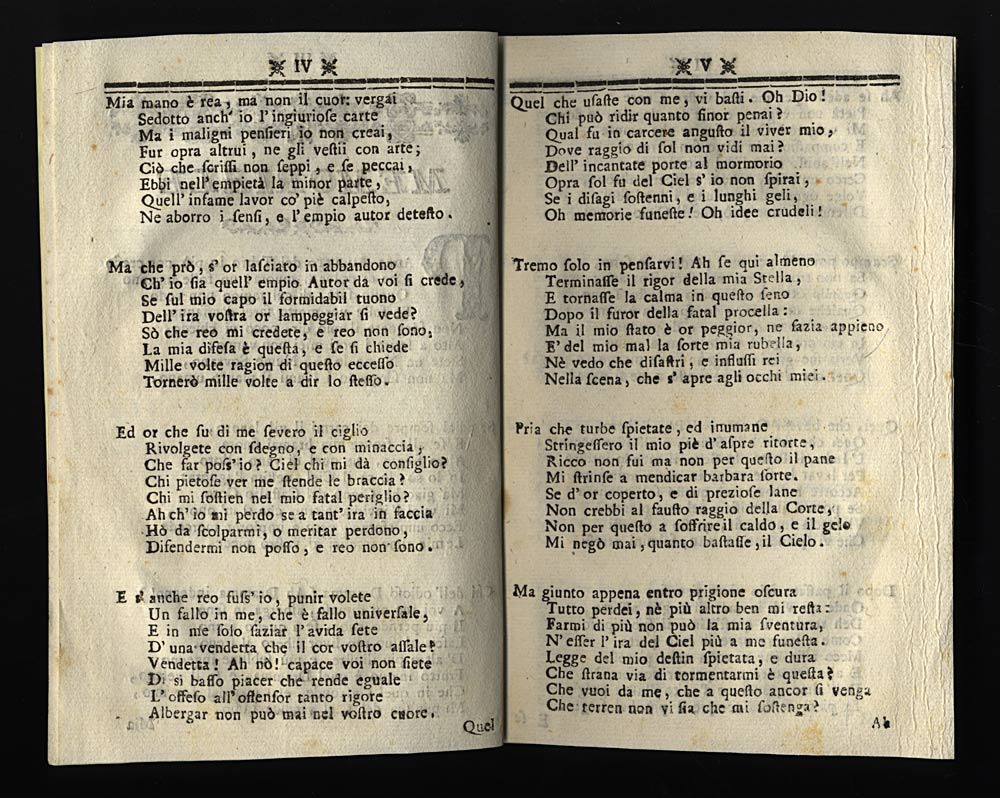 IV
Mia mano è rea, ma non il cuor: vergai
Sedotto anch' io l' ingiurioſe carte
Ma i maligni penſieri io non creai,
Fur opra altrui, ne gli veſtii con arte;
Ciò che ſcriſſi non ſeppi, e ſe peccai,
Ebbi nell' empietà la minor parte,
Quell' infame lavor co' piè calpeſto,
Ne aborro i ſenſi, e l' empio autor deteſto.
Ma che prò, s' or laſciato in abbandono
Ch' io ſia quell' empio Autor da voi ſi crede,
Se ſul mio capo il formidabil tuono
Dell' ira voſtra or lampeggiar ſi vede?
Sò che reo mi credete, e reo non ſono,
La mia difeſa è queſta, e ſe ſi chiede
Mille volte ragion di queſto ecceſſo
Tornerò mille volte a dir lo ſteſſo.
Ed or che ſu di me ſevero il ciglio
Rivolgete con ſdegno, e con minaccia,
Che far poſs' io? Ciel chi mi dà conſiglio?
Chi pietoſe ver me ſtende le braccia?
Chi mi ſoſtien nel mio fatal periglio?
Ah ch' io mi perdo se a tant' ira in faccia
Hò da ſcolparmi, o meritar perdono,
Difendermi non poſſo, e reo non ſono.
E s' anche reo fuſs' io, punir volete
Un fallo in me, che è fallo univerſale,
E in me ſolo ſaziar l' avida ſete
D' una vendetta che il cor voſtro aſſale?
Vendetta! Ah nò! capace voi non ſiete
Di sì baſſo piacer che rende eguale
L' offeſo all' offenſor tanto rigore
Albergar non può mai nel voſtro cuore.
Quel
V
Quel che uſaſte con me, vi baſti. Oh Dio!
Chi può ridir quanto ſinor penai?
Qual fu in carcere anguſto il viver mio,
Dove raggio di ſol non vidi mai?
Dell' incantate porte al mormorio
Opra ſol fu del Ciel s' io non ſpirai,
Se i diſagi ſoſtenni, e i lunghi geli,
Oh memorie funeſte! Oh idee crudeli!
Tremo ſolo in penſarvi! Ah ſe qui almeno
Terminaſſe il rigor della mia Stella,
E tornaſſe la calma in queſto ſeno
Dopo il furor della fatal procella:
Ma il mio ſtato è or peggior, ne ſazia appieno
E' del mio mal la ſorte mia rubella,
Nè vedo che diſaſtri, e influſſi rei
Nella ſcena, che s' apre agli occhi miei.
Pria che turbe ſpietate, ed inumane
Stringeſſero il mio piè d' aſpre ritorte,
Ricco non fui ma non per queſto il pane
Mi ſtrinſe a mendicar barbara ſorte.
Se d' or coperto, e di prezioſe lane
Non crebbi al fauſto raggio della Corte,
Non per queſto a ſoffrire il caldo, e il gelo
Mi negò mai, quanto baſtaſſe, il Cielo.
Ma giunto appena entro prigione oſcura
Tutto perdei, nè più altro ben mi reſta:
Farmi di più non può la mia ſventura,
N' eſſer l' ira del Ciel più a me funeſta.
Legge del mio deſtin ſpietata, e dura
Che ſtrana via di tormentarmi è queſta?
Che vuoi da me, che a queſto ancor ſi venga
Che terren non vi ſia che mi ſoſtenga?
Ah